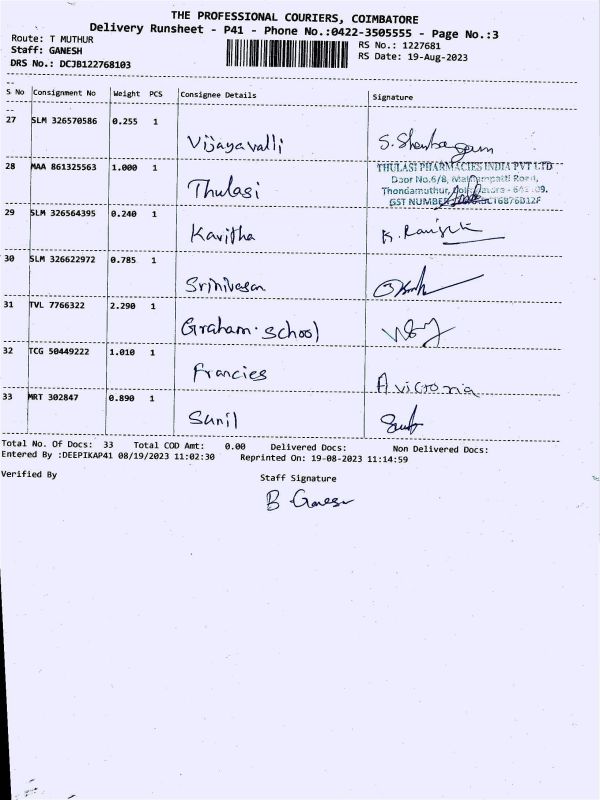 THE PROFESSIONAL COURIERS, COIMBATORE
Delivery Runsheet - P41 - Phone No.:0422-3505555 - Page No.:3
Route: T MUTHUR
RS No.: 1227681
Staff: GANESH
RS Date: 19-Aug-2023
DRS No.: DCJB122768103
S No Consignment No Weight PCS Consignee Details Signature
27 SLM 326570586 0.255 1
Vijayavalli
28 MAA 861325563 1.000 1
THULASI PHARMACIES INDIA PVT LTD
Door No.6/8,
Thulasi
Thondamuthur,
GST NUMBER
29 SLM 326564395 0.240 1
Kavitha
30 SLM 326622972 0.785 1
Srinivasan
31 TVL 7766322 2.290 1
Graham. School
32 TCG 50449222 1.010 1
Francies A victoria
33 MRT 302847 0.890 1
Sunil
Total No. Of Docs: 33 Total COD Amt: 0.00 Delivered Docs: Non Delivered Docs:
Entered By :DEEPIKAP41 08/19/2023 11:02:30 Reprinted On: 19-08-2023 11:14:59
Verified By Staff Signature
B Ganesh